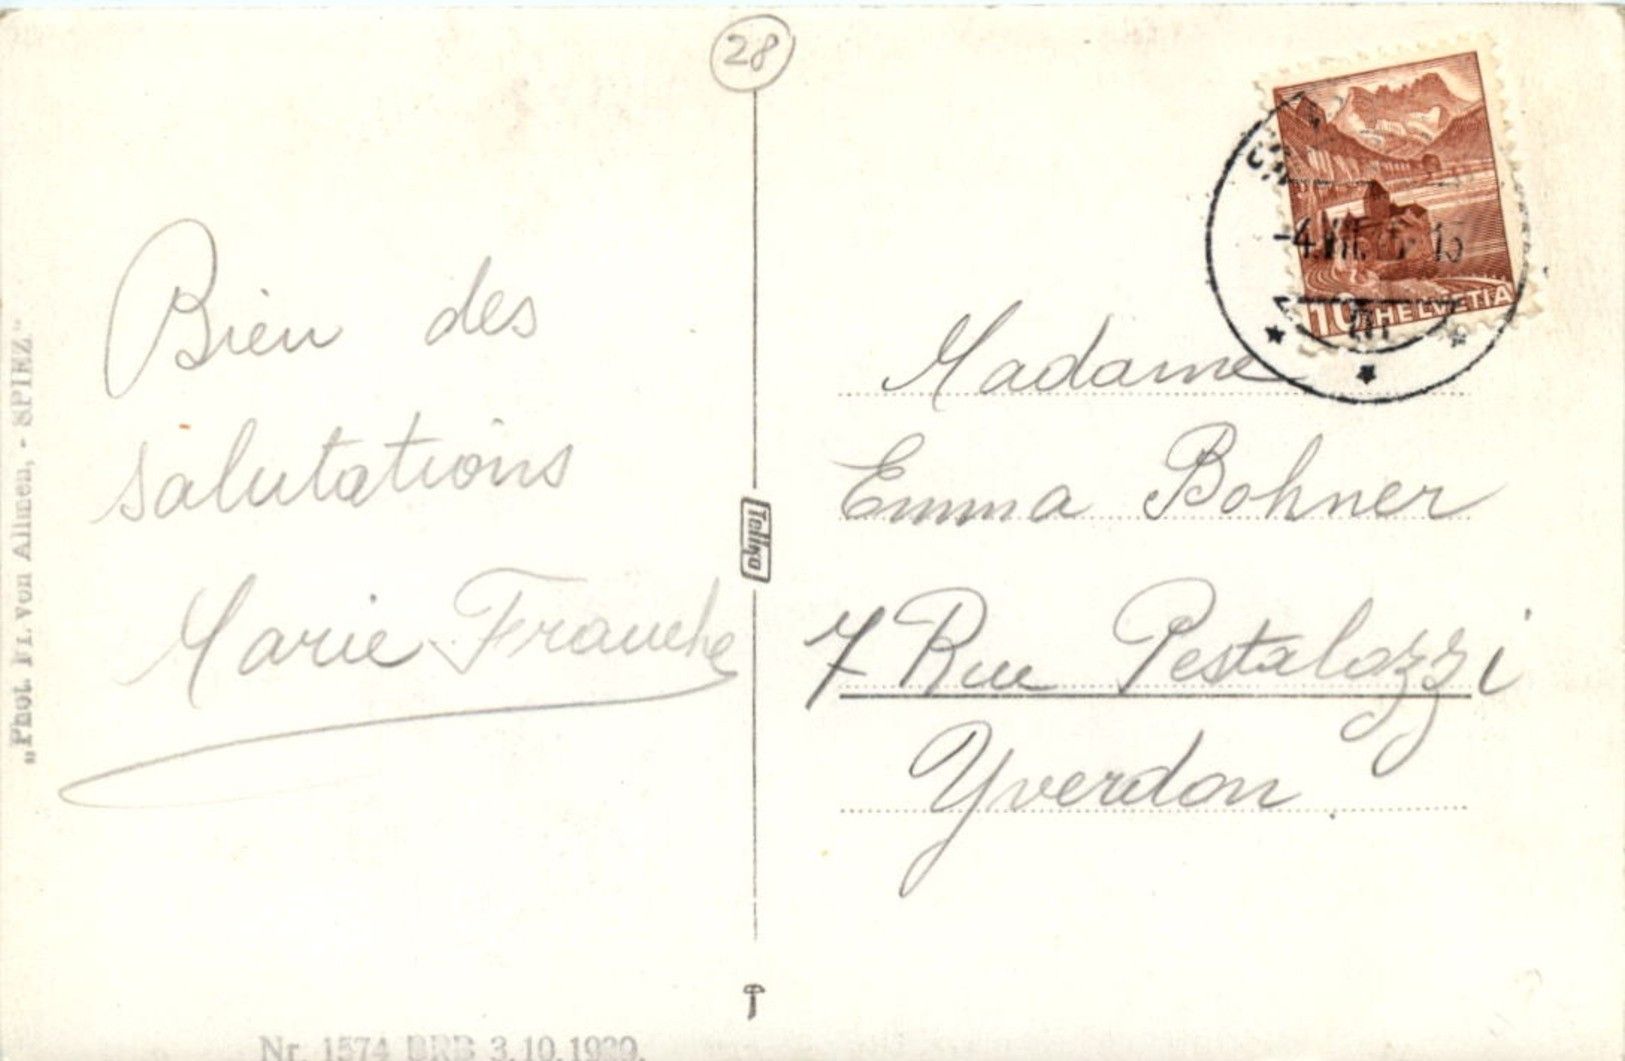 28
Bien des
salutations
Marie Franche
„Phot. Fr. von Allmen, - SPIEZ."
Tellko
Nr. 1574 BRB 3.10.19
10 HELVETIA
-4. 13
Madame
Emma Bohner
7 Rue Pestalozzi
Yverdon